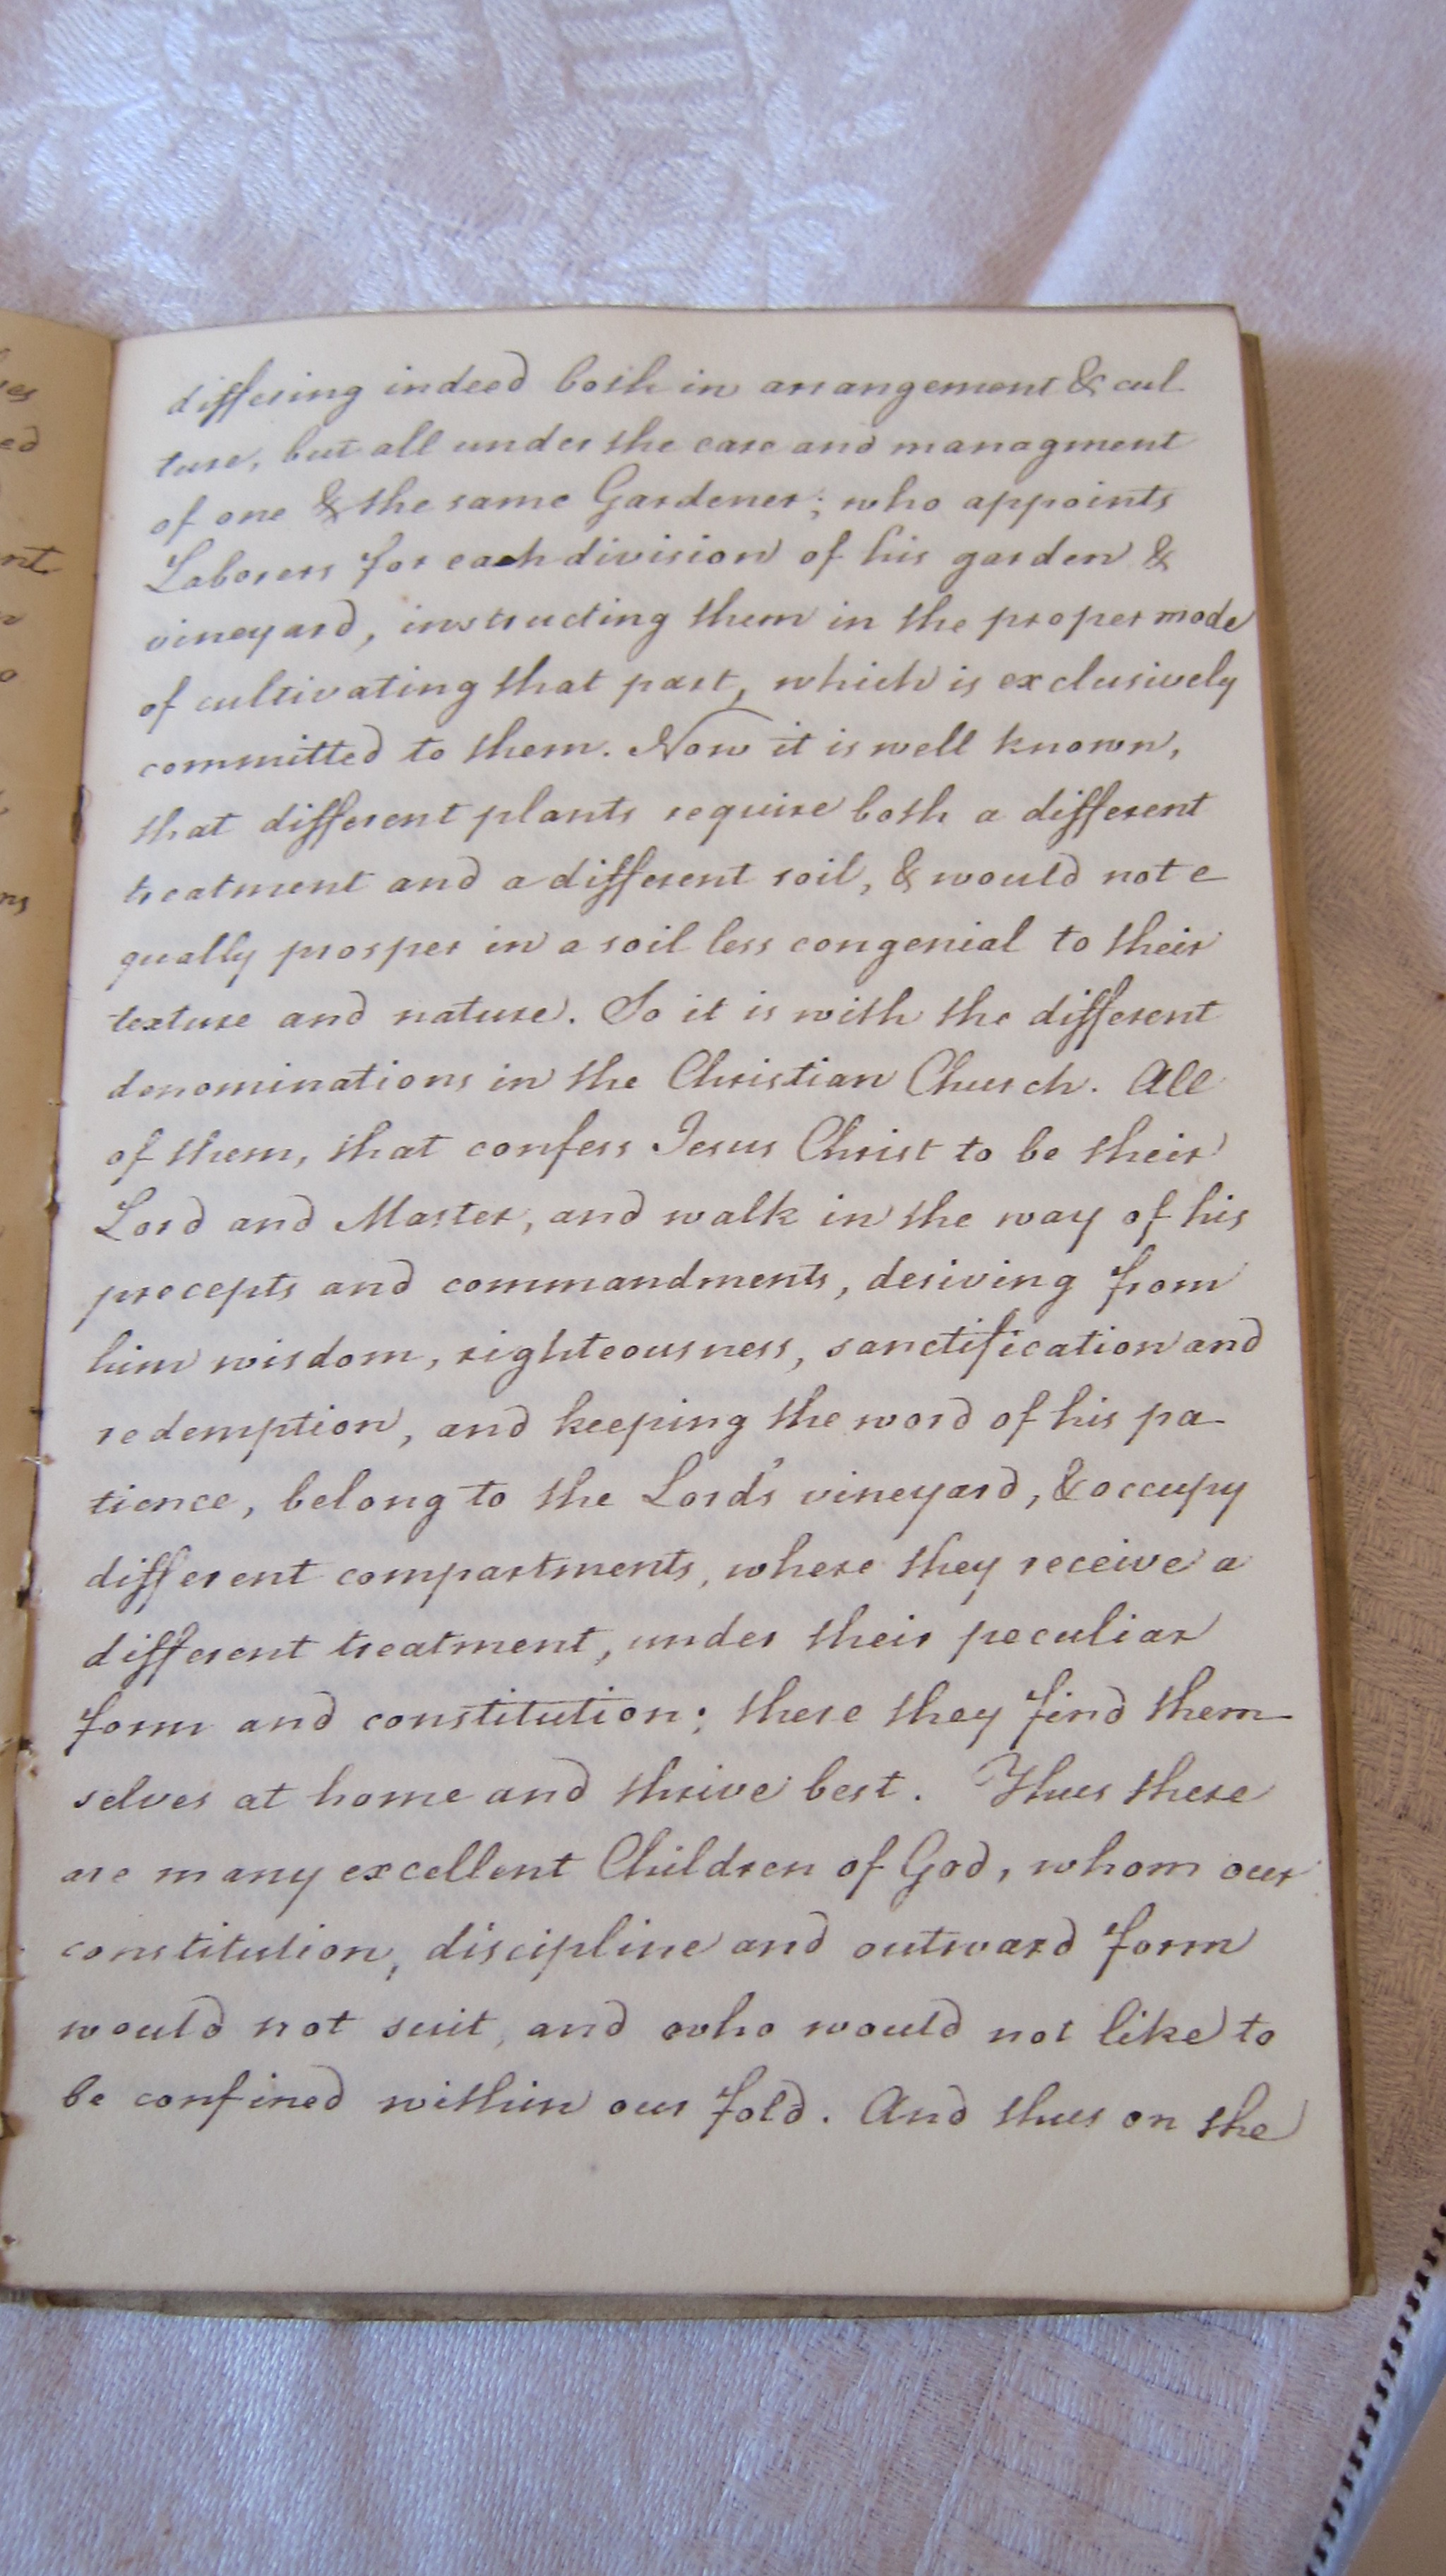 differing indeed both in arrangement & cul
ture, but all under the care and managment
of one & the same Gardener; who appoints
Laborers for each division of his garden &
vineyard, instructing them in the proper mode
of cultivating that part, which is exclusively
committed to them. Now it is well known,
that different plants require both a different
treatment and a different soil, & would not e
qually prosper in a soil less congenial to their
texture and nature. So it is with the different
denominations in the Christian Church. All
of them, that confess Jesus Christ to be their
Lord and Master, and walk in the way of his
precepts and commandments, deriving from
him wisdom, righteousness, sanctification and
redemption, and keeping the word of his pa-
tience, belong to the Lord's vineyard, & occupy
different compartments, where they receive a
different treatment, under their peculiar
form and constitution; there they find them-
selves at home and thrive best. Thus there
are many excellent Children of God, whom our
constitution, discipline and outward form
would not suit, and who would not like to
be confined within our fold. And thus on the